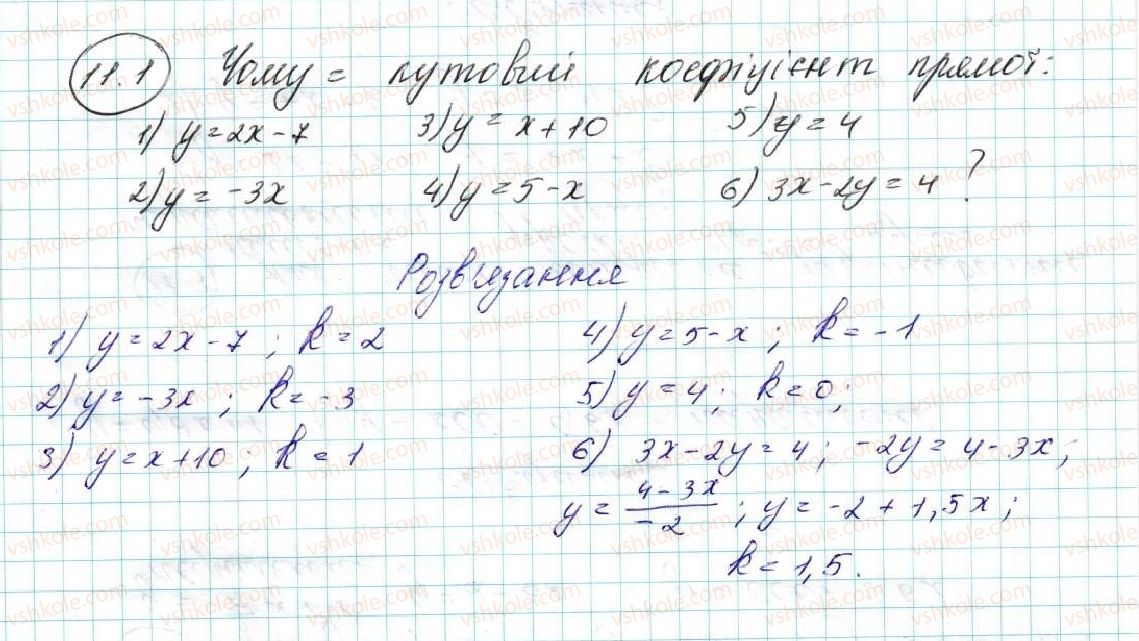 11.1 Чому = кутовий коефіцієнт прямої:
1) y = 2x - 7 3) y = x + 10 5) y = 4
2) y = -3x 4) y = 5 - x 6) 3x - 2y = 4 ?
Розв'язання
1) y = 2x - 7 ; k = 2
2) y = -3x ; k = -3
3) y = x + 10 ; k = 1
4) y = 5 - x ; k = -1
5) y = 4 ; k = 0 ;
6) 3x - 2y = 4 ; -2y = 4 - 3x ;
y = (4 - 3x)/(-2) ; y = -2 + 1,5x ;
k = 1,5.
vshkole.com